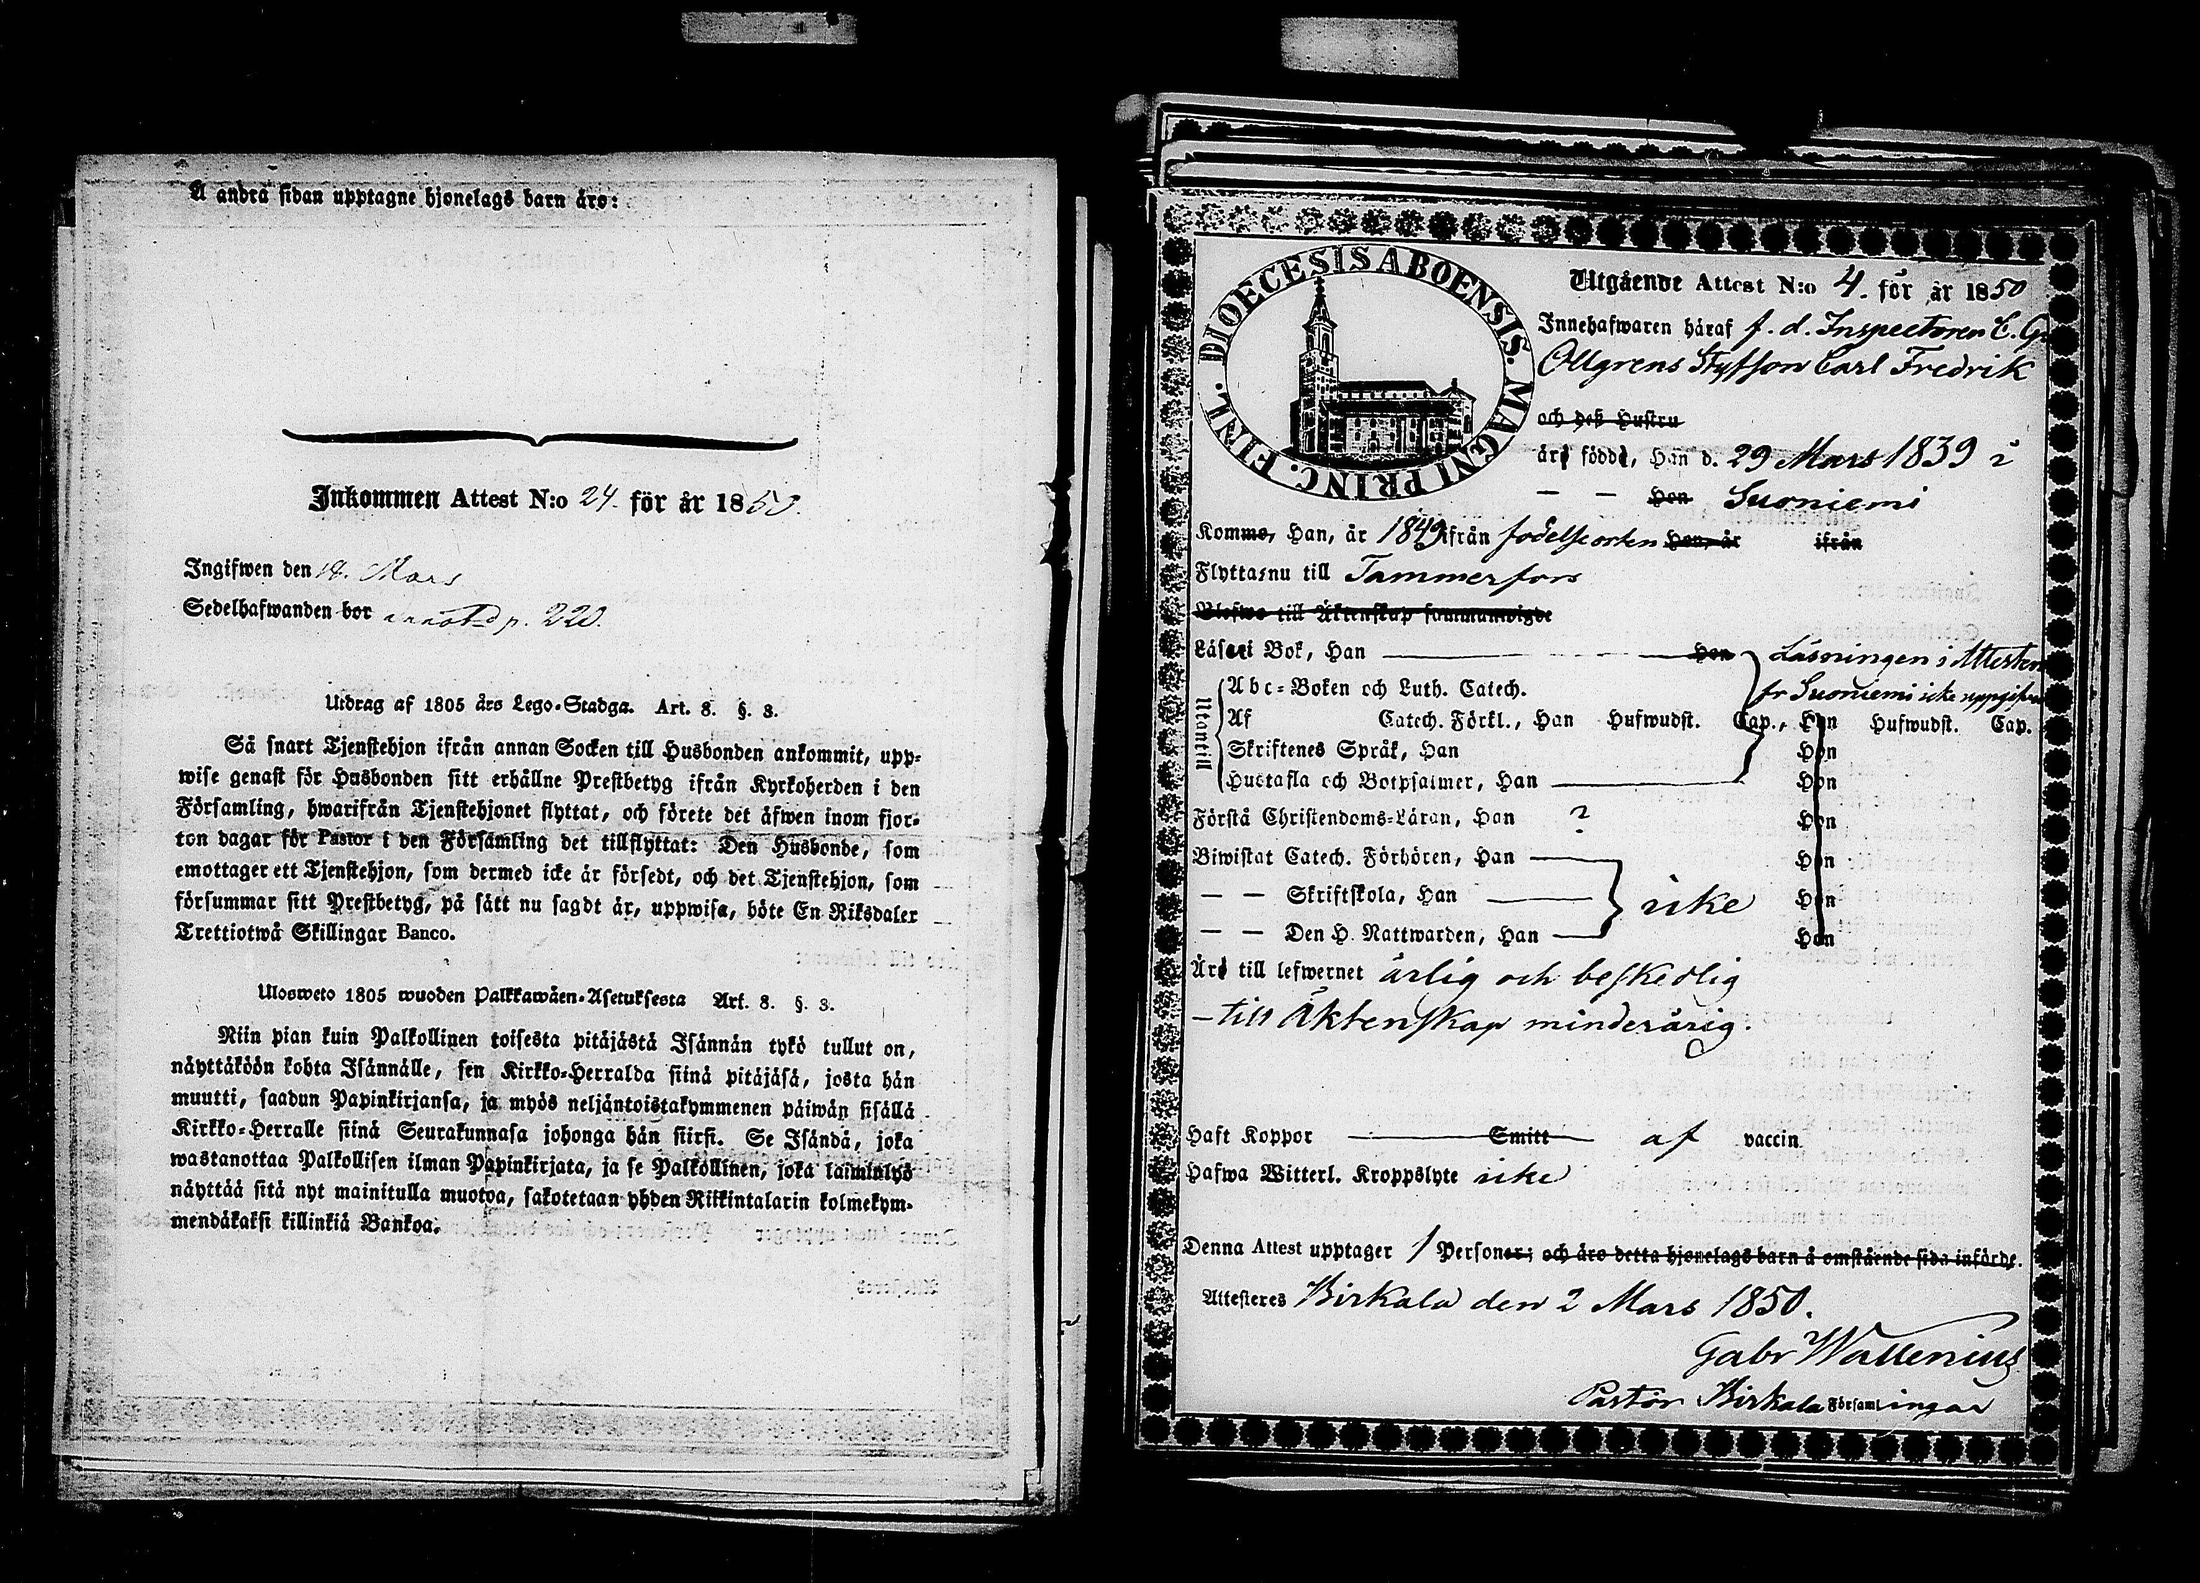 Å andra sidan upptagne hjonelags barn äro:
Inkommen Attest N:o 24. för år 1850.
Ingifwen den 18. Mars
Sedelhafwanden bor annot. p. 220.
Utdrag af 1805 års Lego-Stadga. Art. 8. §. 3.
Så snart Tjenstehjon ifrån annan Socken till Husbonden ankommit, upp-
wise genast för Husbonden sitt erhållne Prestbetyg ifrån Kyrkoherden i den
Församling, hwarifrån Tjenstehjonet flyttat, och förete det äfwen inom fjor-
ton dagar för Pastor i den Församling det tillflyttat: Den Husbonde, som
emottager ett Tjenstehjon, som dermed icke är försedt, och det Tjenstehjon, som
försummar sitt Prestbetyg, på sätt nu sagdt är, uppwisa, böte En Riksdaler
Trettiotwå Skillingar Banco.
Ulosweto 1805 wuoden Palkkawäen-Asetuksesta Art. 8. §. 3.
Niin pian kuin Palkollinen toisesta pitäjästä Isännän tykö tullut on,
näyttäköön kohta Isännälle, sen Kirkko-Herralda siinä pitäjäsä, josta hän
muutti, saadun Papinkirjansa, ja myös neljäntoistakymmenen päiwän sisällä
Kirkko-Herralle siinä Seurakunnasa johonga hän siirsi. Se Isändä, joka
wastanottaa Palkollisen ilman Papinkirjata, ja se Palkollinen, joka laiminlyö
näyttää sitä nyt mainitulla muotoa, sakotetaan yhden Riikintalarin kolmekym-
mendäkaksi killinkiä Bankoa.
DIOECESIS ABOENSIS. MAGNI PRINC. FINL.
Utgående Attest N:o 4. för år 1850
Innehafwaren häraf f. d. Inspectoren C. G.
Ollgrens Styfson Carl Fredrik
och deß Hustru
äro födde, Han d. 29 Mars 1839 i
— — Hon Suoniemi
Komme, Han, år 1849 ifrån födelseorten Hon, år ifrån
Flyttar nu till Tammerfors
Blefwo till Äktenskap sammanwigde
Läser i Bok, Han Hon Läsningen i Attesten
fr Suoniemi icke uppgifven
Utantill
Abc-Boken och Luth. Catech.
Af Catech. Förkl., Han Hufwudst. Cap., Hon Hufwudst. Cap.
Skriftenes Språk, Han Hon
Hustafla och Botpsalmer, Han Hon
Förstå Christendoms-Läran, Han ? Hon
Biwistat Catech. Förhören, Han Hon
— — Skriftskola, Han icke Hon
— — Den H. Nattwarden, Han Hon
Äro till lefwernet ärlig och beskedlig
— till Äktenskap minderårig.
Haft Koppor Smitt af vaccin
Hafwa Witterl. Kroppslyte icke
Denna Attest upptager 1 Personer; och äro detta hjonelags barn å omstående sida införde.
Attesteres Birkala den 2 Mars 1850.
Gabr Wallenius
Pastor Birkala Församlingar